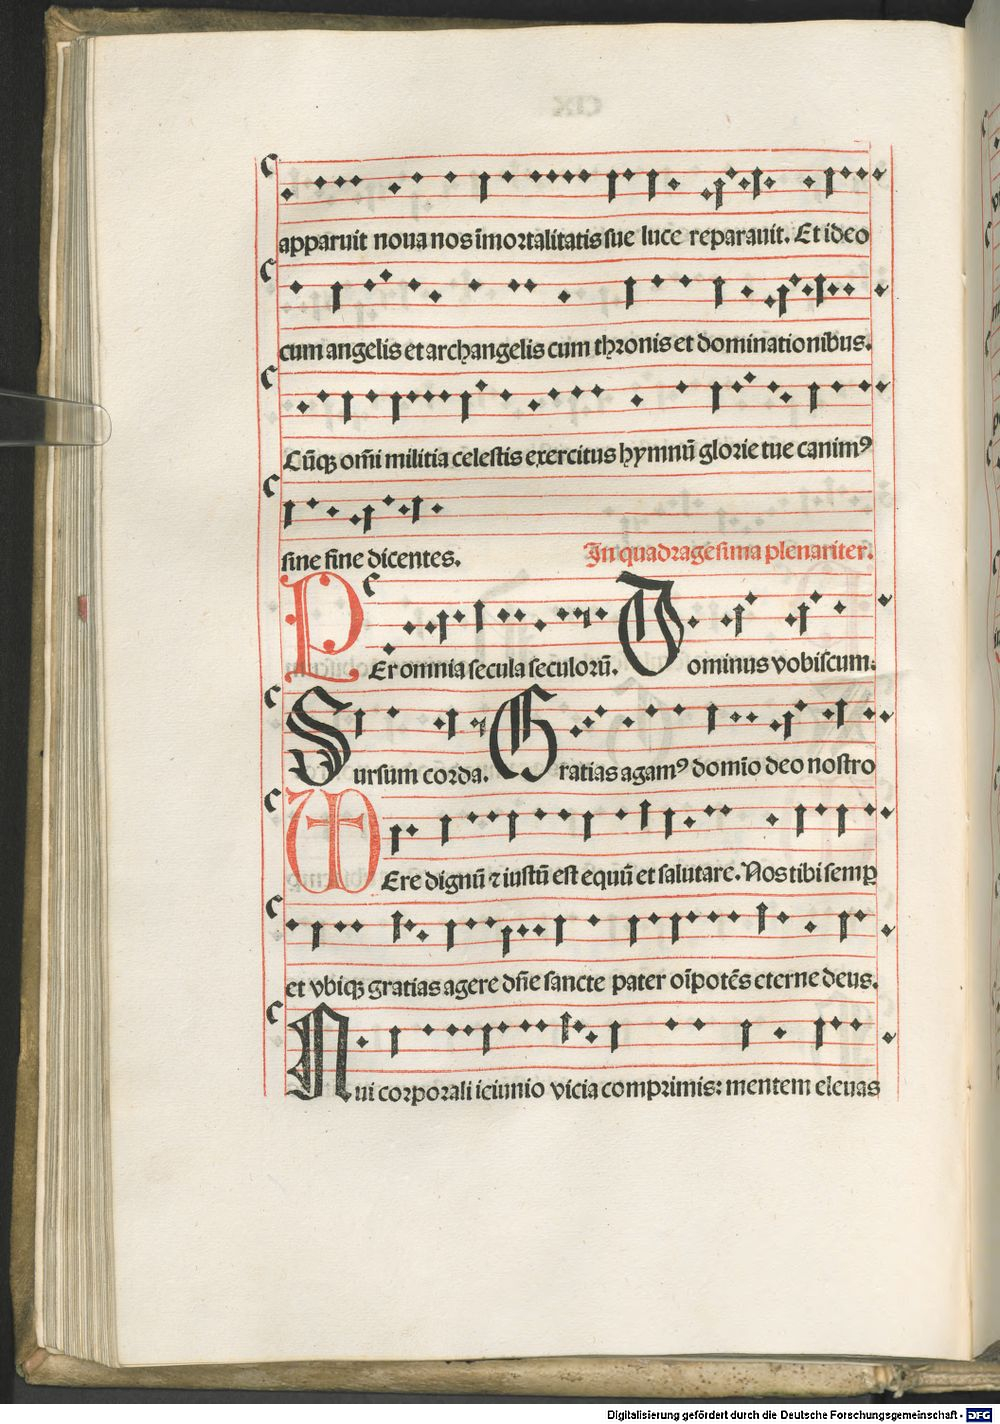 apparuit noua nos īmortalitatis sue luce reparauit. Et ideo
cum angelis et archangelis cum thronis et dominationibus.
Cūqꝫ om̄i militia celestis exercitus hymnū glorie tue canimꝰ
sine fine dicentes.
In quadragesima plenariter.
PEr omnia secula seculorū. Dominus vobiscum:
Sursum corda. Gratias agamꝰ domīo deo nostro
VEre dignū ⁊ iustū est equū et salutare. Nos tibi semꝑ
et vbiqꝫ gratias agere dn̄e sancte pater oīpotēs eterne deus.
Qui corporali ieiunio vicia comprimis: mentem eleuas
Digitalisierung gefördert durch die Deutsche Forschungsgemeinschaft - DFG